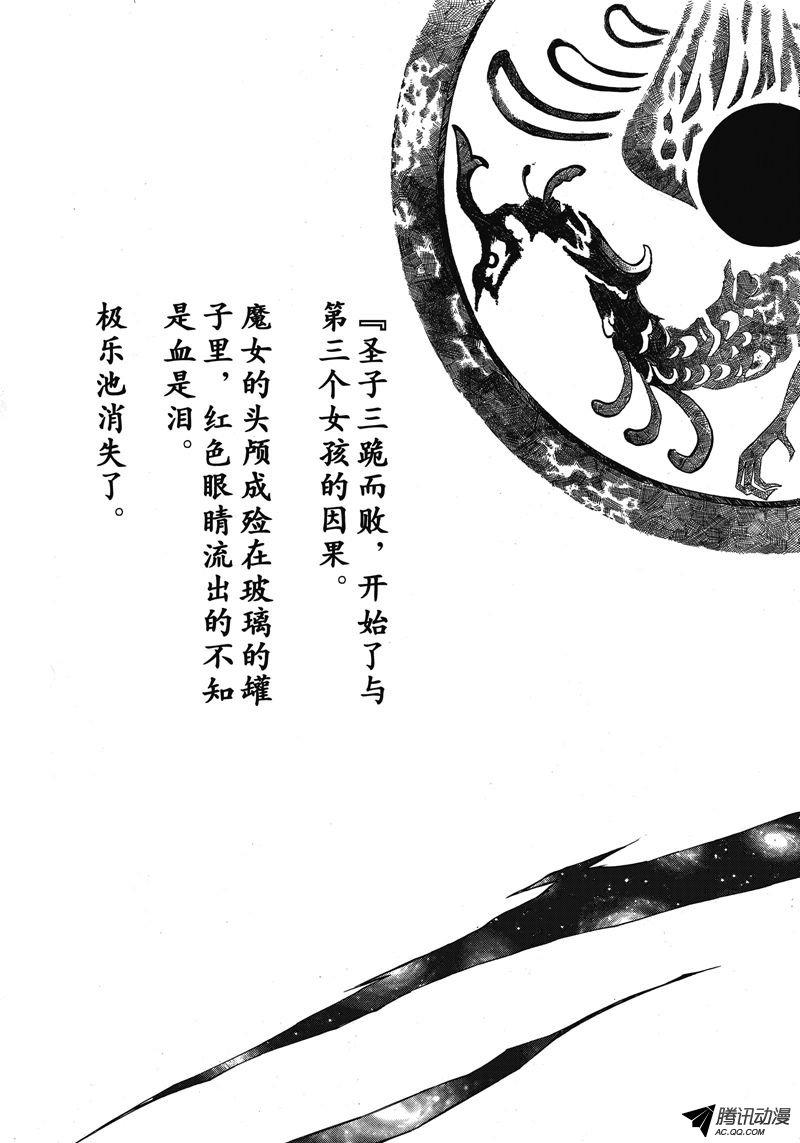 『圣子三跪而败，开始了与
第三个女孩的因果。
魔女的头颅成殓在玻璃的罐
子里，红色眼睛流出的不知
是血是泪。
极乐池消失了。
腾讯动漫
AC.QQ.COM